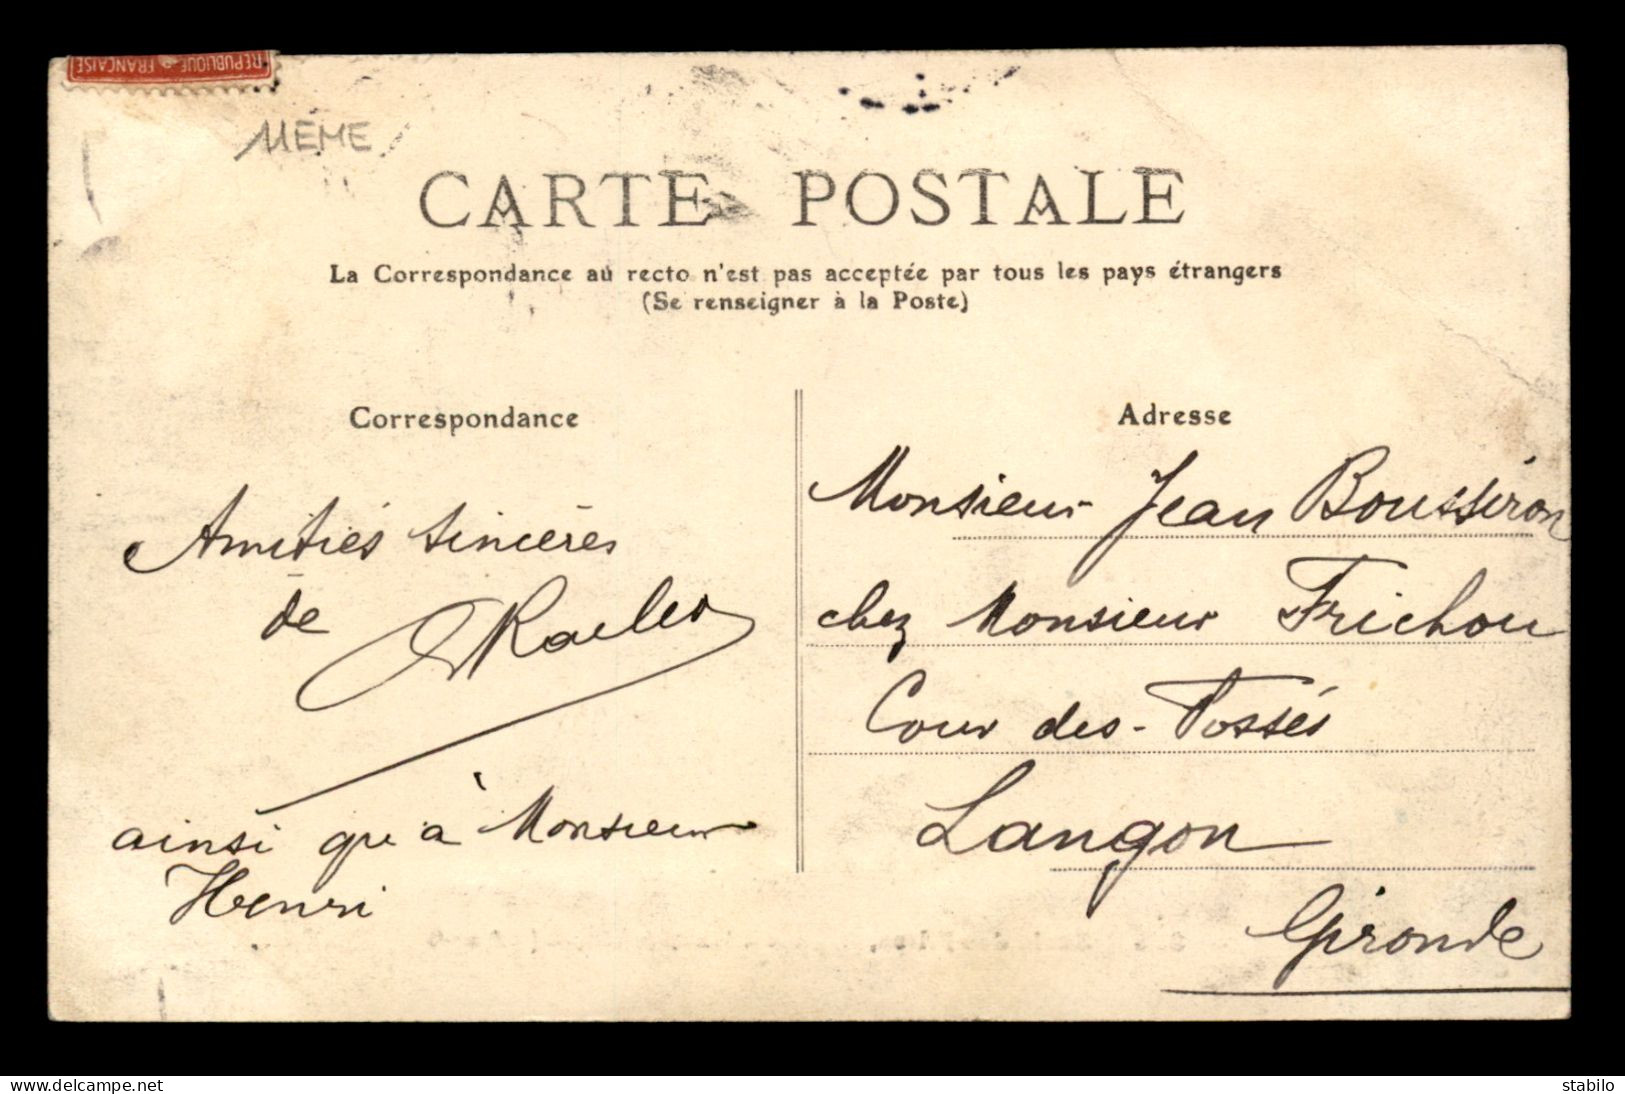 REPUBLIQUE FRANÇAISE
MÊME
CARTE POSTALE
La Correspondance au recto n'est pas acceptée par tous les pays étrangers
(Se renseigner à la Poste)
Correspondance
Amitiés sincères
de
ainsi qu'à Monsieur
Henri
Adresse
Monsieur Jean Boussiron
chez Monsieur Frichou
Cour des Fossés
Langon
Gironde
delcampe.net
stabilo